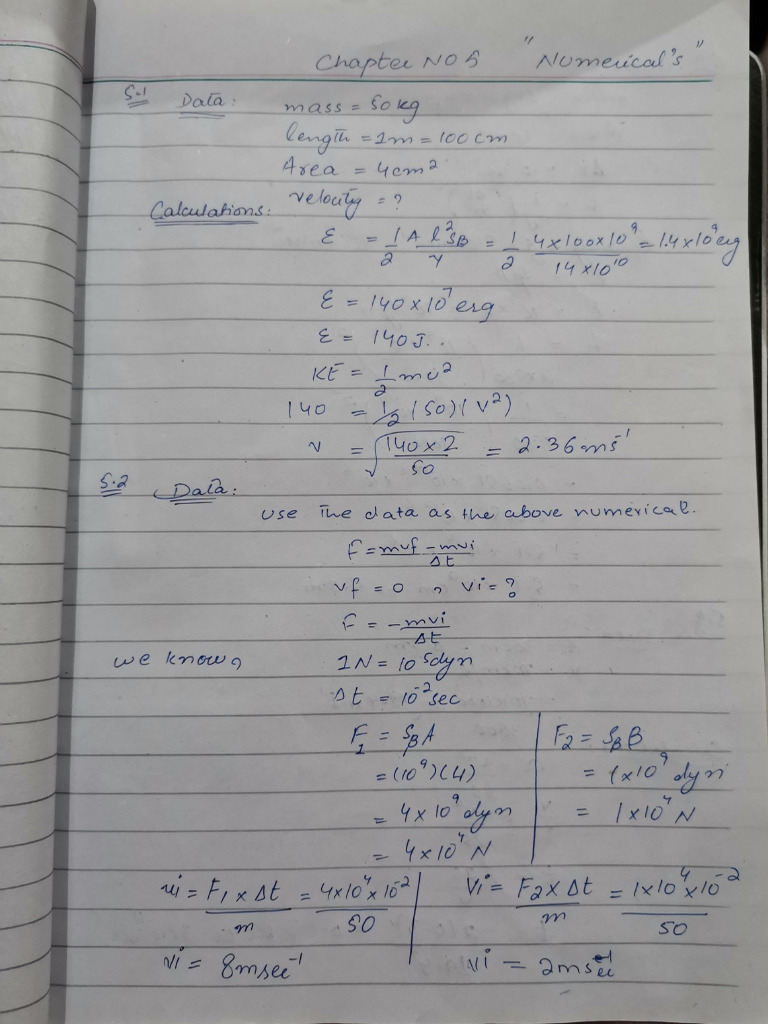 Chapter NO 5 "Numerical's"
5.1 Data: mass = 50 kg
length = 1m = 100 cm
Area = 4cm²
velocity = ?
Calculations:
Ɛ = 1/2 A l S²B / Y = 1/2 4x100x10⁹ / 14 x10¹⁰ = 1.4 x 10⁹ erg
Ɛ = 140 x 10⁷ erg
Ɛ = 140 J.
KE = 1/2 mv²
140 = 1/2 (50) (V²)
v = √(140 x 2 / 50) = 2.36 ms⁻¹
5.2 Data:
use the data as the above numerical.
F = mvf - mvi / Δt
vf = 0 , vi = ?
F = - mvi / Δt
we know, 1N = 10⁵ dyn
Δt = 10⁻² sec
F₁ = SBA
= (10⁹)(4)
= 4 x 10⁹ dyn
= 4 x 10⁴ N
F₂ = SBB
= 1x10⁹ dyn
= 1x10⁴ N
vi = F₁ x Δt / m = 4x10⁴x10⁻² / 50
vi = 8msec⁻¹
Vi = F₂ x Δt / m = 1x10⁴x10⁻² / 50
vi = 2msec⁻¹